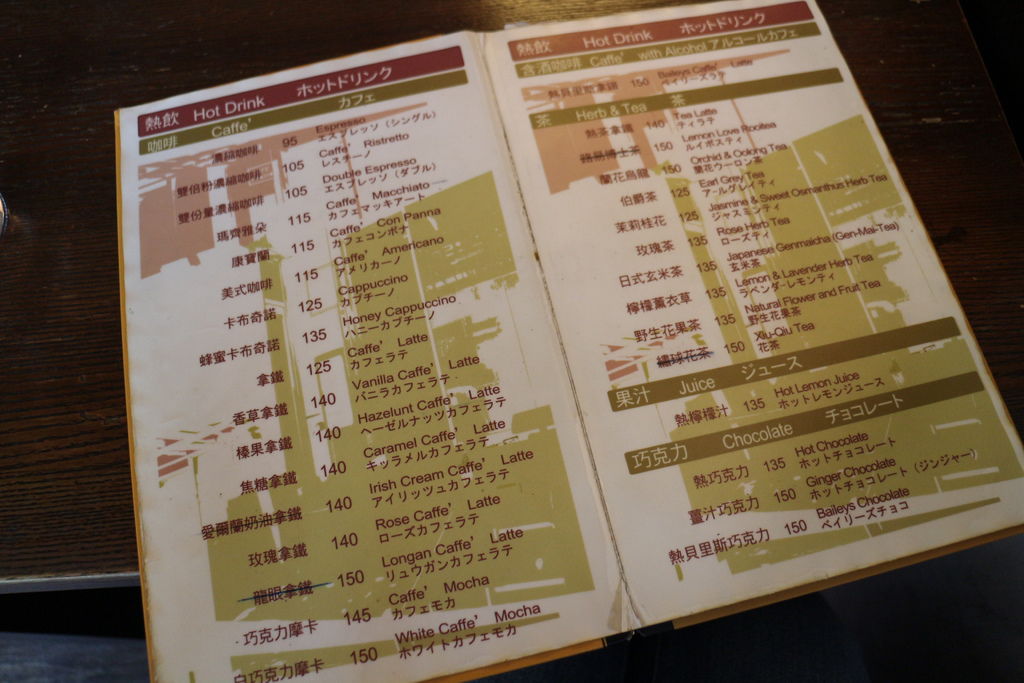 熱飲 Hot Drink ホットドリンク
咖啡 Caffe' カフェ
濃縮咖啡 95 Espresso
エスプレッソ（シングル）
雙倍粉濃縮咖啡 105 Caffe' Ristretto
レスチーノ
雙份量濃縮咖啡 105 Double Espresso
エスプレッソ（ダブル）
瑪齊雅朵 115 Caffe' Macchiato
カフェマッキアート
康寶蘭 115 Caffe' Con Panna
カフェコンポナ
美式咖啡 115 Caffe' Americano
アメリカーノ
卡布奇諾 125 Cappuccino
カプチーノ
蜂蜜卡布奇諾 135 Honey Cappuccino
ハニーカプチーノ
拿鐵 125 Caffe' Latte
カフェラテ
香草拿鐵 140 Vanilla Caffe' Latte
バニラカフェラテ
榛果拿鐵 140 Hazelunt Caffe' Latte
ヘーゼルナッツカフェラテ
焦糖拿鐵 140 Caramel Caffe' Latte
キッラメルカフェラテ
愛爾蘭奶油拿鐵 140 Irish Cream Caffe' Latte
アイリッツュカフェラテ
玫瑰拿鐵 140 Rose Caffe' Latte
ローズカフェラテ
龍眼拿鐵 150 Longan Caffe' Latte
リュウガンカフェラテ
巧克力摩卡 145 Caffe' Mocha
カフェモカ
白巧克力摩卡 150 White Caffe' Mocha
ホワイトカフェモカ
熱飲 Hot Drink ホットドリンク
含酒咖啡 Caffe' with Alcohol アルコールカフェ
熱貝里斯拿鐵 150 Baileys Caffe' Latte
ベイリーズラテ
茶 Herb & Tea 茶
熱茶拿鐵 140 Tea Latte
ティラテ
路易博士茶 150 Lemon Love Rooitea
ルイボスティ
蘭花烏龍 150 Orchid & Oolong Tea
蘭花ウーロン茶
伯爵茶 125 Earl Grey Tea
アールグレイティ
茉莉桂花 125 Jasmine & Sweet Osmanthus Herb Tea
ジャスミンティ
玫瑰茶 135 Rose Herb Tea
ローズティ
日式玄米茶 135 Japanese Genmaicha (Gen-Mai-Tea)
玄米茶
檸檬薰衣草 135 Lemon & Lavender Herb Tea
ラベンダーレモンティ
野生花果茶 135 Natural Flower and Fruit Tea
野生花果茶
繡球花茶 150 Xiu-Qiu Tea
花茶
果汁 Juice ジュース
熱檸檬汁 135 Hot Lemon Juice
ホットレモンジュース
巧克力 Chocolate チョコレート
熱巧克力 135 Hot Chocolate
ホットチョコレート
薑汁巧克力 150 Ginger Chocolate
ホットチョコレート（ジンジャー）
熱貝里斯巧克力 150 Baileys Chocolate
ベイリーズチョコ